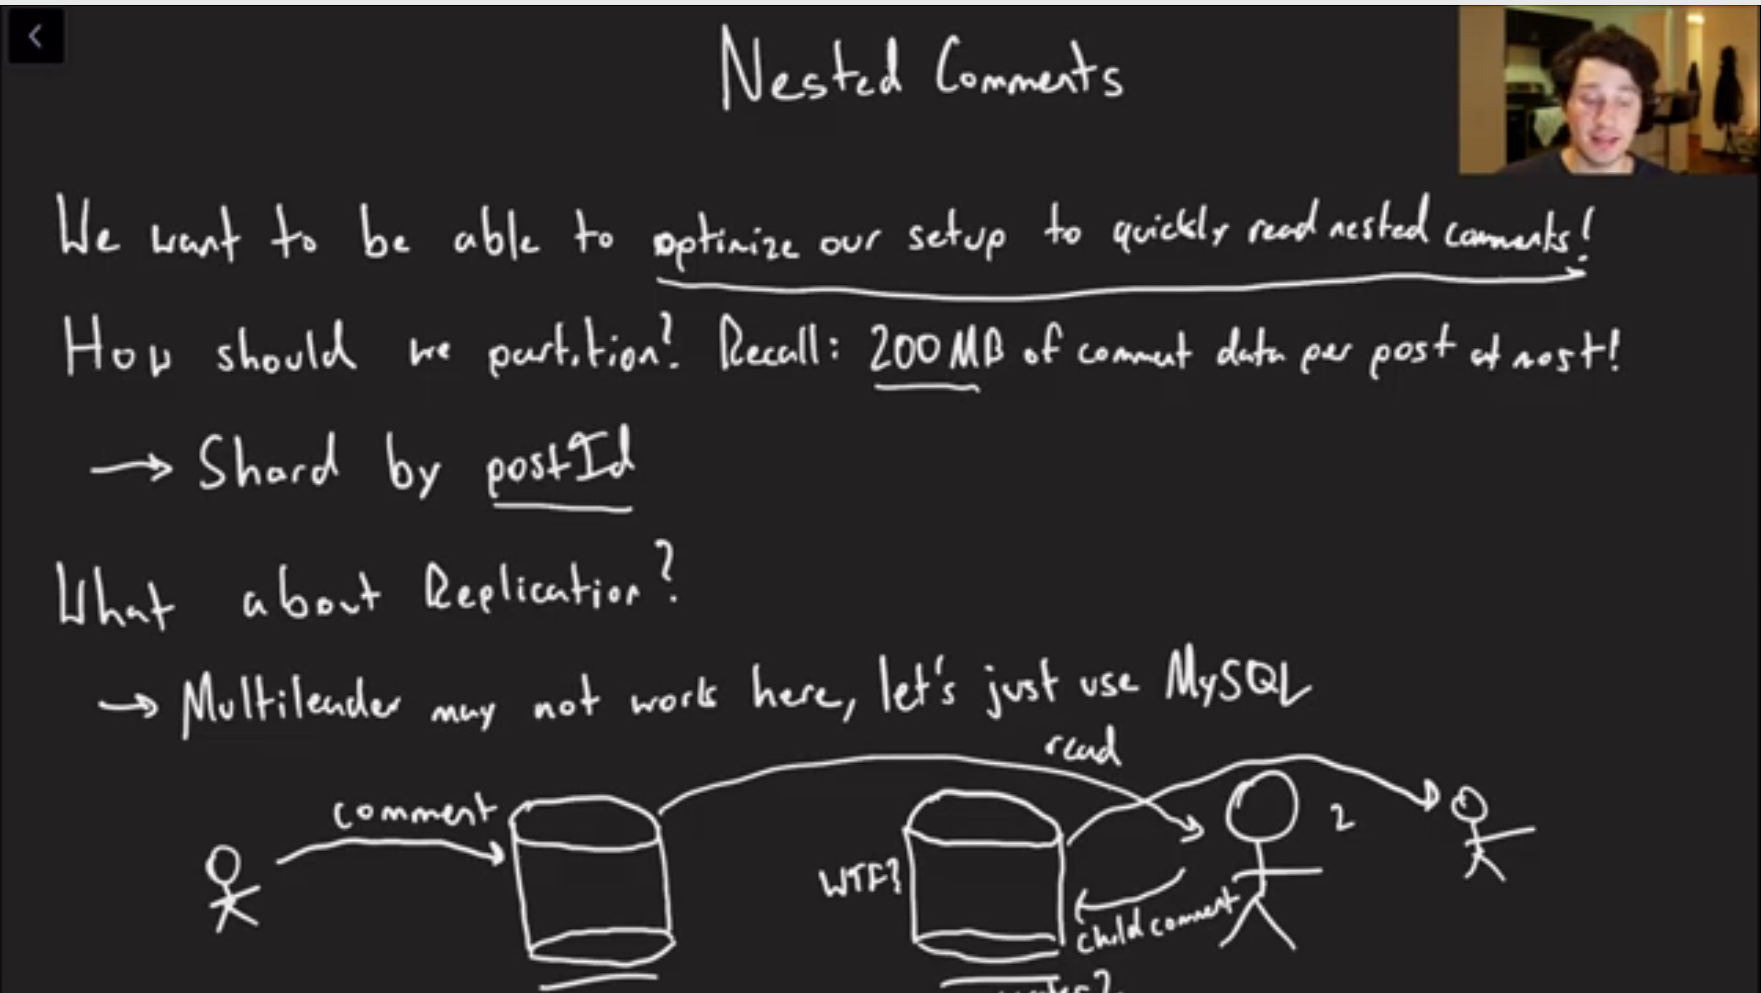 Nested Comments
We want to be able to optimize our setup to quickly read nested comments!
How should we partition? Recall: 200 MB of comment data per post at most!
→ Shard by postId
What about Replication?
→ Multileader may not work here, let's just use MySQL
read
comment
2
WTF?
child comment